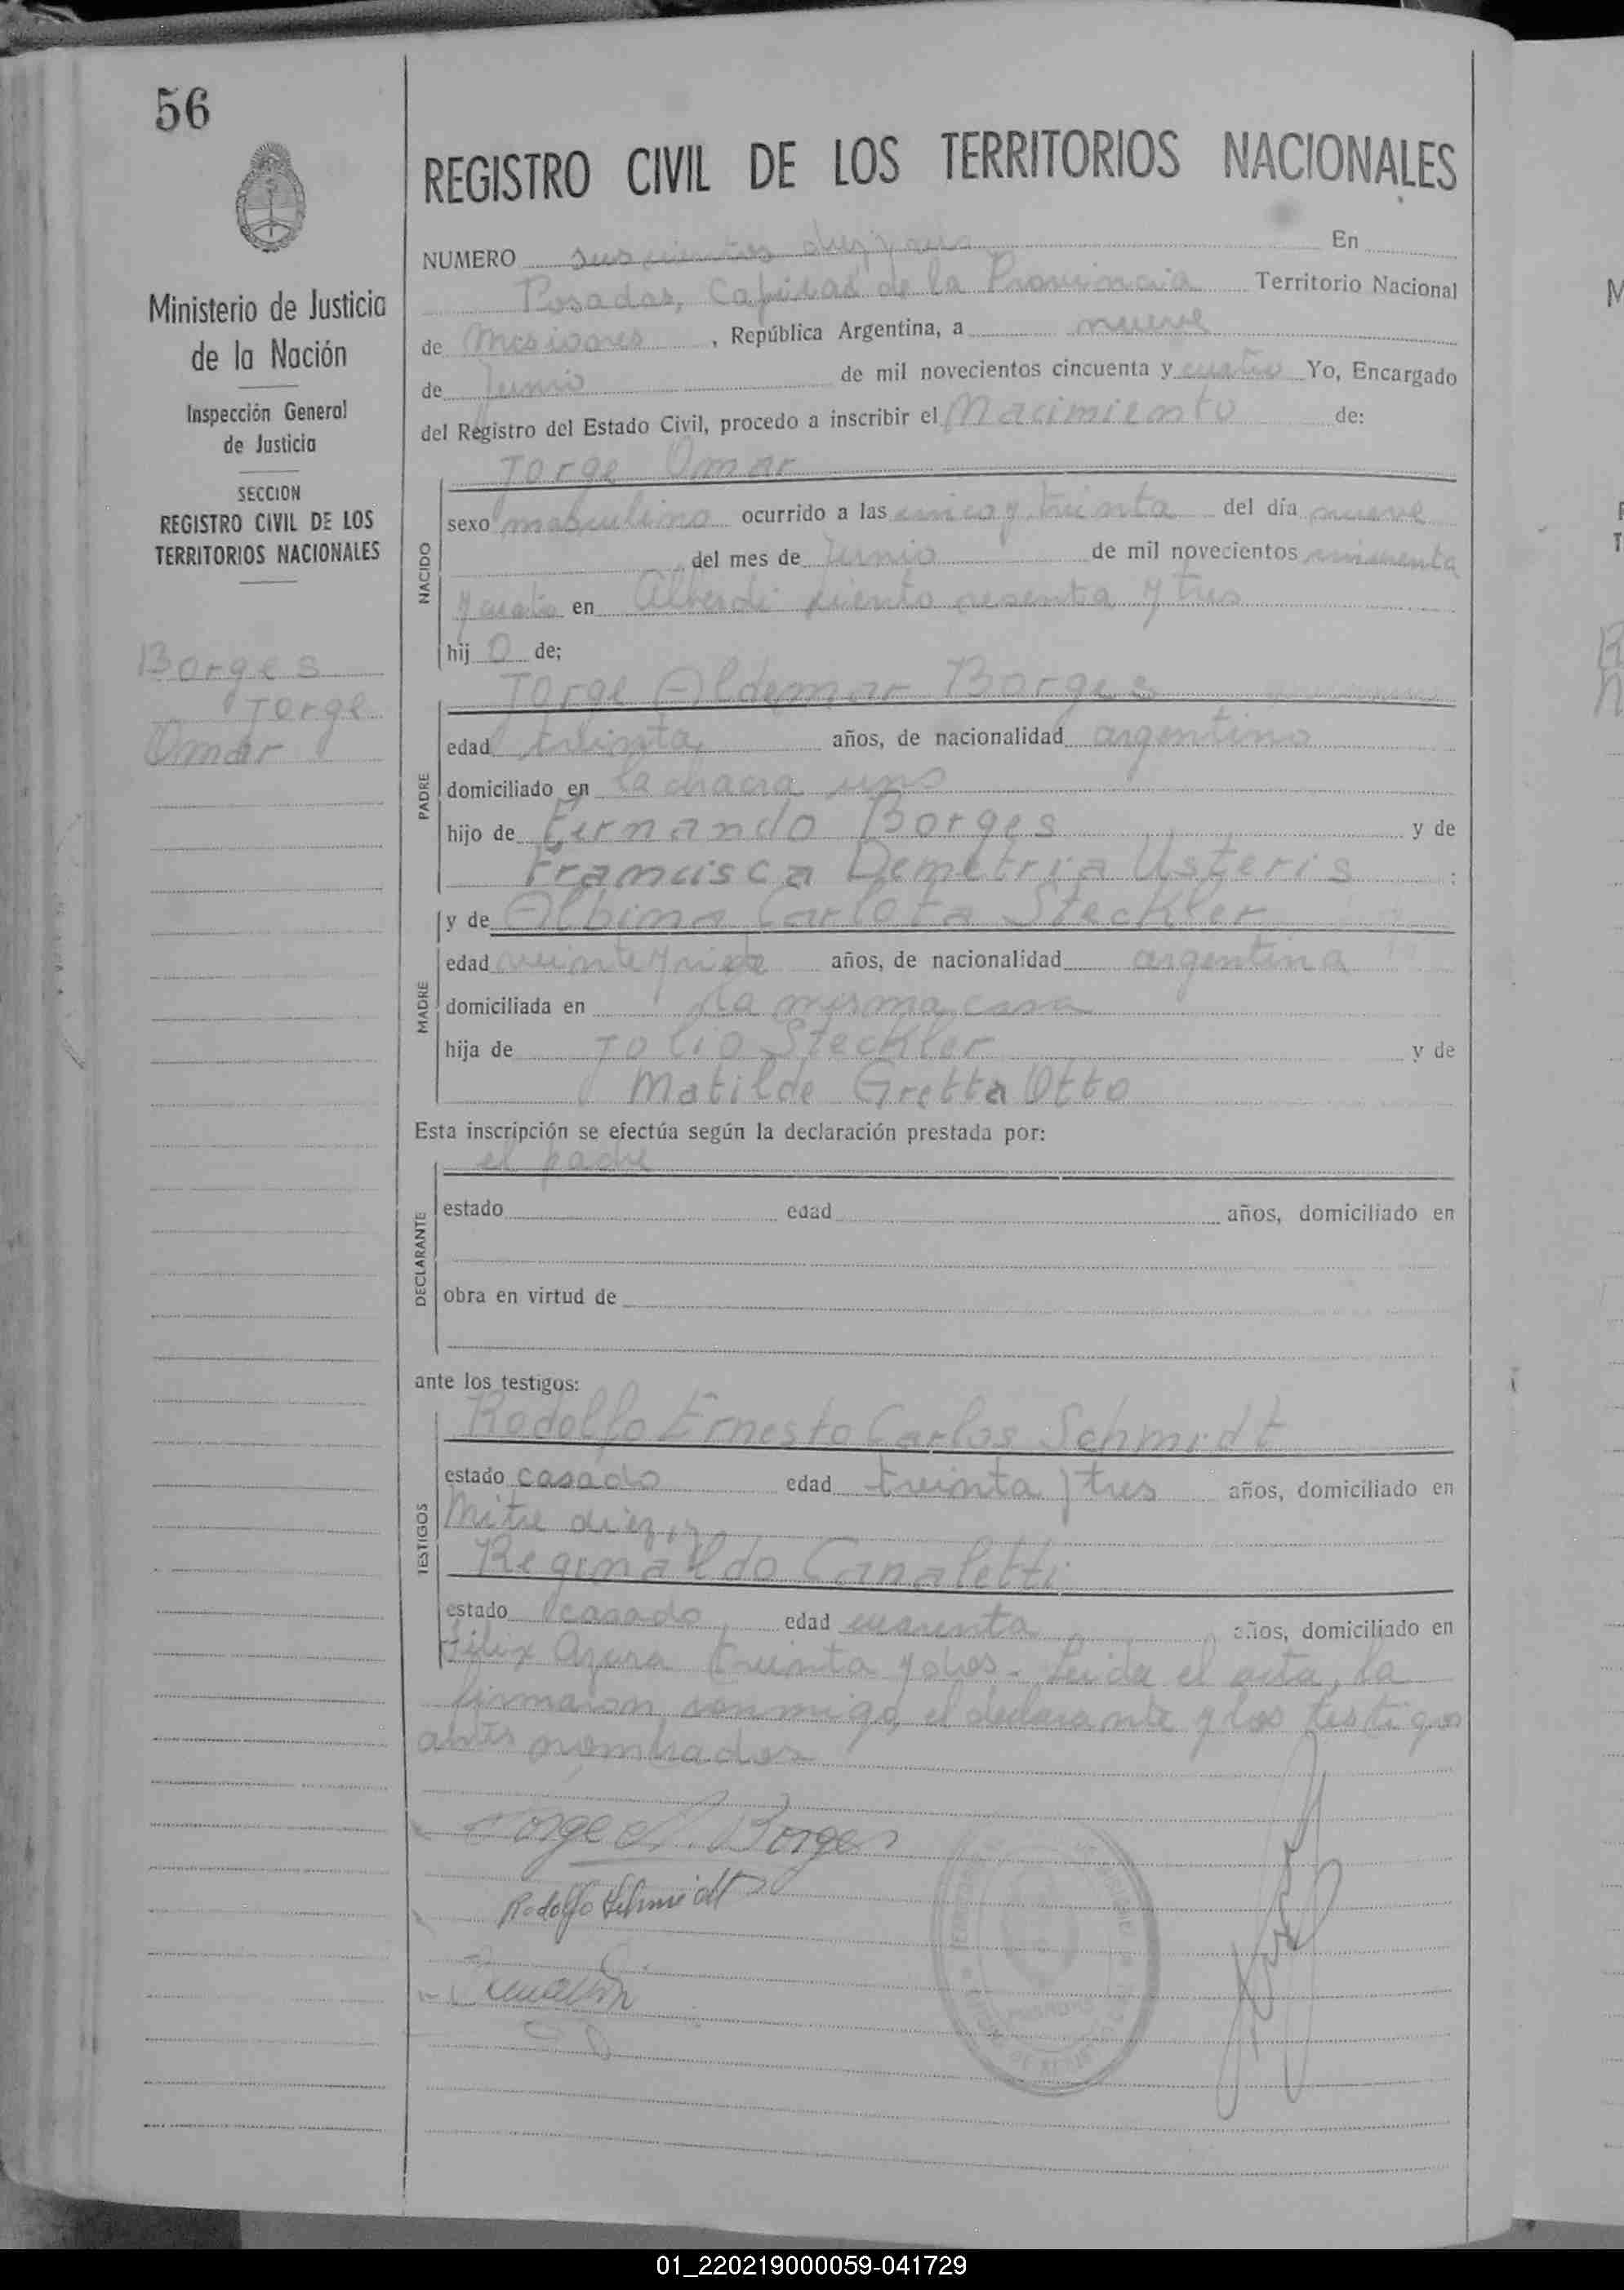 56
REGISTRO CIVIL DE LOS TERRITORIOS NACIONALES
Ministerio de Justicia
de la Nación
Inspección General
de Justicia
SECCION
REGISTRO CIVIL DE LOS
TERRITORIOS NACIONALES
Borges
Jorge
Omar
NUMERO seiscientos diez y seis En
Posadas, Capital de la Provincia Territorio Nacional
de Misiones, República Argentina, a nueve
de Junio de mil novecientos cincuenta y cuatro Yo, Encargado
del Registro del Estado Civil, procedo a inscribir el Nacimiento de:
Jorge Omar
NACIDO
sexo masculino ocurrido a las cinco y treinta del día nueve
del mes de Junio de mil novecientos cincuenta
y cuatro en Alberdi ciento sesenta y tres
hijo de;
Jorge Aldemar Borges
PADRE
edad treinta años, de nacionalidad argentino
domiciliado en la chacra uno
hijo de Fernando Borges y de
Francisca Demetria Usteris :
y de Albina Carlota Steckler
MADRE
edad veinte y años, de nacionalidad argentina
domiciliada en la misma casa
hija de Julio Steckler y de
Matilde Gretta Otto
Esta inscripción se efectúa según la declaración prestada por:
el padre
DECLARANTE
estado edad años, domiciliado en
obra en virtud de
ante los testigos:
Rodolfo Ernesto Carlos Schmidt
TESTIGOS
estado casado edad treinta y tres años, domiciliado en
Mitre diez
Reginaldo Canaletti
estado casado edad cuarenta años, domiciliado en
Félix Azara treinta y dos. Leida el acta, la
firmaron conmigo, el declarante y los testigos
antes nombrados
Jorge A. Borges
Rodolfo Schmidt
POSADAS
01_220219000059-041729